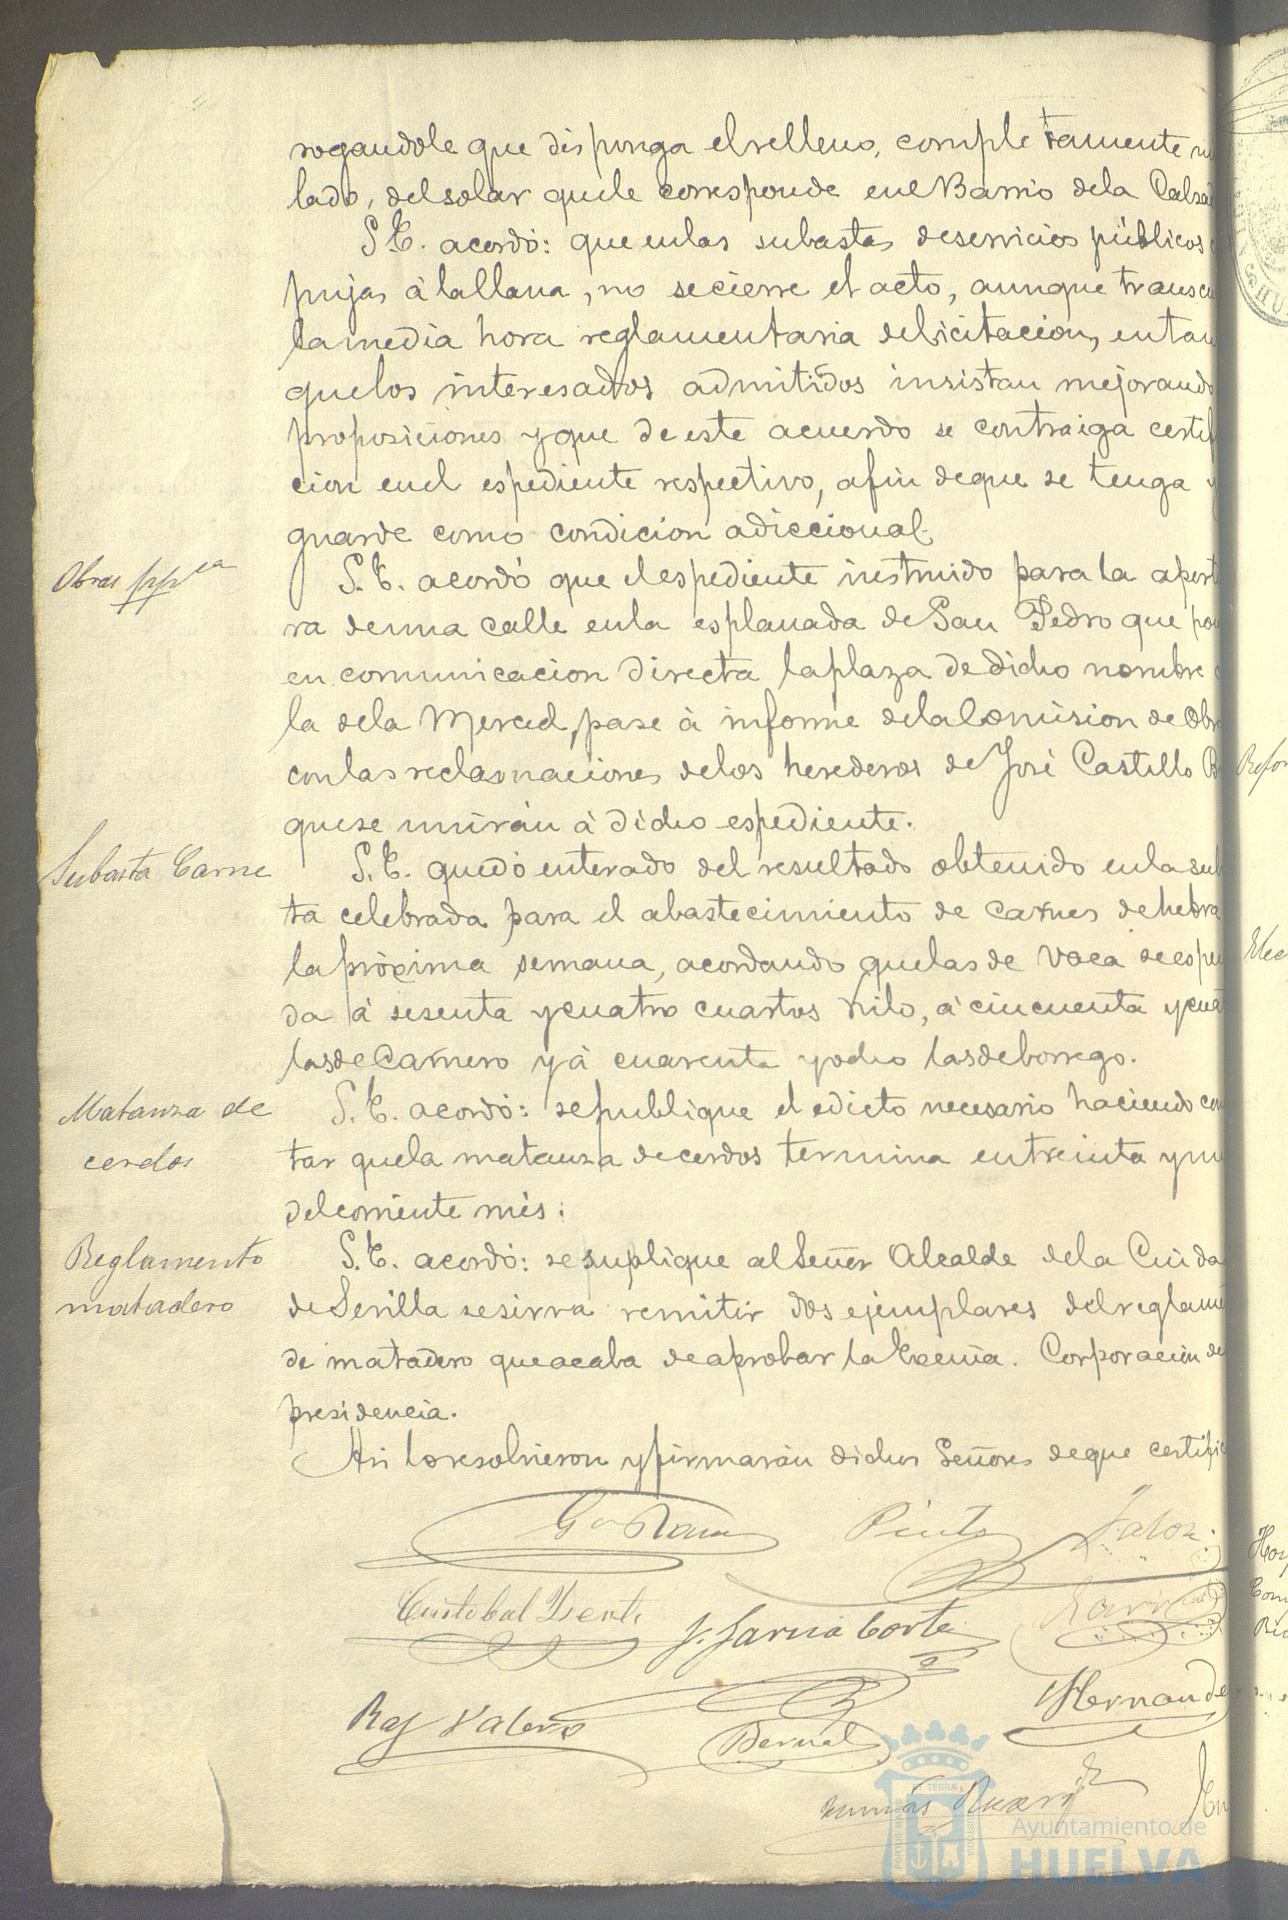 rogandole que disponga el relleno, completamente
lado, del solar que le corresponde en el Barrio de la Calzad
S. E. acordó: que en las subastas de servicios públicos
pujas á la llana, no se cierre el acto, aunque transcu
la media hora reglamentaria de licitacion, en tan
que los interesados admitidos insistan mejorando
proposiciones y que de este acuerdo se contraiga certif
cion en el espediente respectivo, afin de que se tenga y
guarde como condicion adiccional.
Obras pp.cas
S. E. acordó que el espediente instruido para la apert
ra de una calle en la esplanada de San Pedro que pon
en comunicacion directa la plaza de dicho nombre c
la de la Merced, pase á informe de la Comision de Obr
con las reclamaciones de los herederos de José Castillo
que se unirán á dicho espediente.
Subasta Carne
S. E. quedó enterado del resultado obtenido en la sub
ta celebrada para el abastecimiento de carnes de hebra
la próxima semana, acordando que las de vaca se espen
da á sesenta y cuatro cuartos kilo, á cincuenta y cuat
las de Carnero y á cuarenta y ocho las de borrego.
Matanza de
cerdos
S. E. acordó: se publique el edicto necesario haciendo con
tar que la matanza de cerdos termina en treinta y un
del corriente mes.
Reglamento
matadero
S. E. acordó: se suplique al Señor Alcalde de la Ciuda
de Sevilla se sirva remitir dos ejemplares del reglame
de matadero que acaba de aprobar la Excma. Corporacion de
presidencia.
Asi lo resolvieron y firmarán dichos Señores de que certific
Pinto
Cristobal
J. Garcia Corte
Raf Valero
Bernal
Hernande
Refor
Elec
PORTUS MARIS ET TERRÆ CUSTODIA
Ayuntamiento de
HUELVA